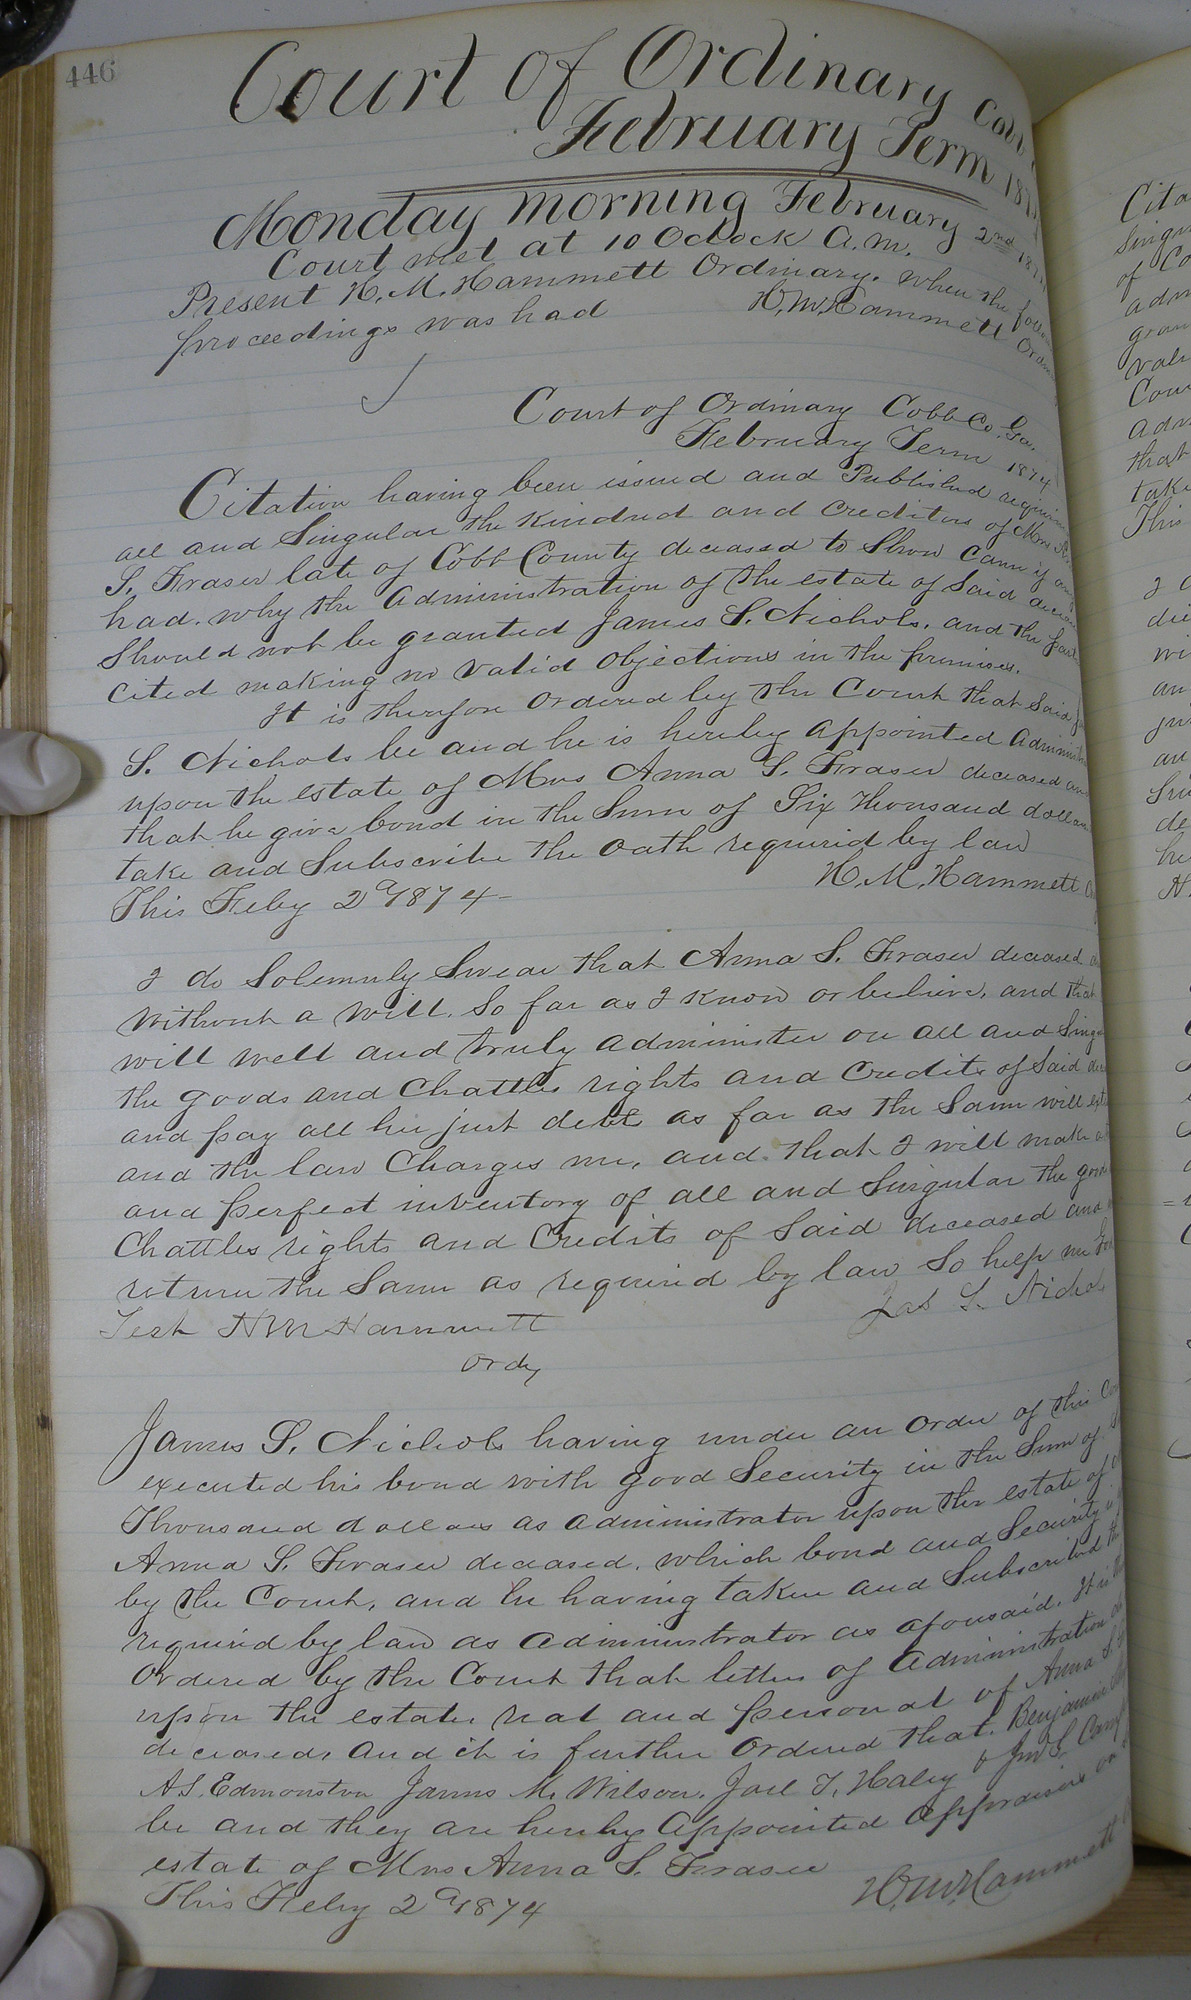 446
Court of Ordinary Cobb
February Term 187
Monday morning February 2nd 187
Court met at 10 Oclock A.M.
Present H. M. Hammett Ordinary. when the
proceedings was had H. M. Hammett
Court of Ordinary Cobb Co. Ga.
February Term 1874
Citation having been issued and Published
all and Singular the Kindred and Creditors of Mrs
S. Fraser late of Cobb County deceased to Show Cause if any
had. why the Administration of the estate of Said
Should not be granted James S. Nichols. and the
cited making no valid objections in the premises.
It is therefore ordered by the Court that Said
S. Nichols be and he is hereby appointed
upon the estate of Mrs Anna S. Fraser deceased
that he give bond in the Sum of Six Thousand dollars
take and Subscribe the oath required by law
This Feby 2d 1874 H. M. Hammett
I do Solemnly Swear that Anna S. Fraser deceased
without a will. So far as I know or believe, and that
will well and truly administer on all and
the goods and Chattles rights and Credits of Said
and pay all her just debt as far as the Same will
and the law Charges me, and that I will make
and perfect inventory of all and Singular the
Chattles rights and Credits of Said deceased and
return the Same as required by law So help me
Test H M Hammett Jas S. Nichols
Ordy
James S. Nichols having under an order of this
executed his bond with good Security in the Sum of
Thousand dollars as administrator upon the estate of
Anna S. Fraser deceased. which bond and Security
by the Court, and he having taken and Subscribed the
required by law as administrator as aforesaid. It is
Ordered by the Court that letters of administration
upon the estate, real and personal of Anna S.
deceased, and it is further ordered that. Benjamin
A. S. Edmonston James M. Wilson. Joel T. Haley & Jno S.
be and they are hereby appointed appraisers on
estate of Mrs Anna S. Fraser
This Feby 2d 1874 H. M. Hammett